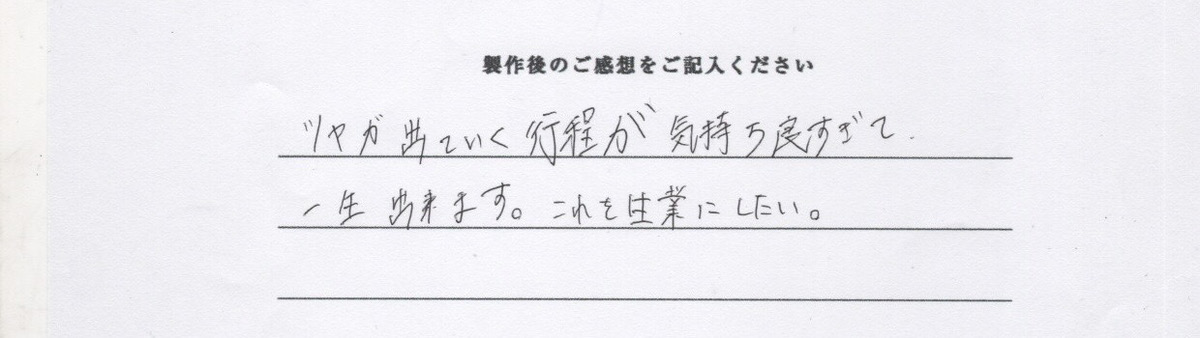 製作後のご感想をご記入ください
ツヤが出ていく行程が気持ち良すぎて
一生出来ます。これを生業にしたい。